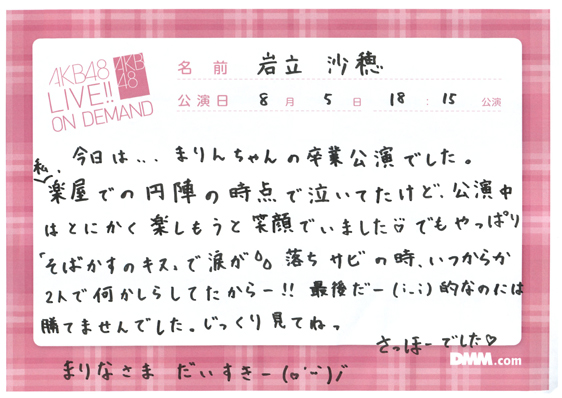 AKB48
LIVE!!
ON DEMAND
AKB
48
名前 岩立 沙穂
公演日 8月 5日 18:15公演
今日は... まりんちゃんの卒業公演でした。
私、楽屋での円陣の時点で泣いてたけど、公演中
はとにかく楽しもうと笑顔でいました♡でもやっぱり
「そばかすのキス」で涙が 落ちサビの時、いつからか
2人で何かしらしてたからー!! 最後だー(;_;)的なのには
勝てませんでした。じっくり見てねっ
さっほーでした♡
まりなさま だいすきー
DMM.com